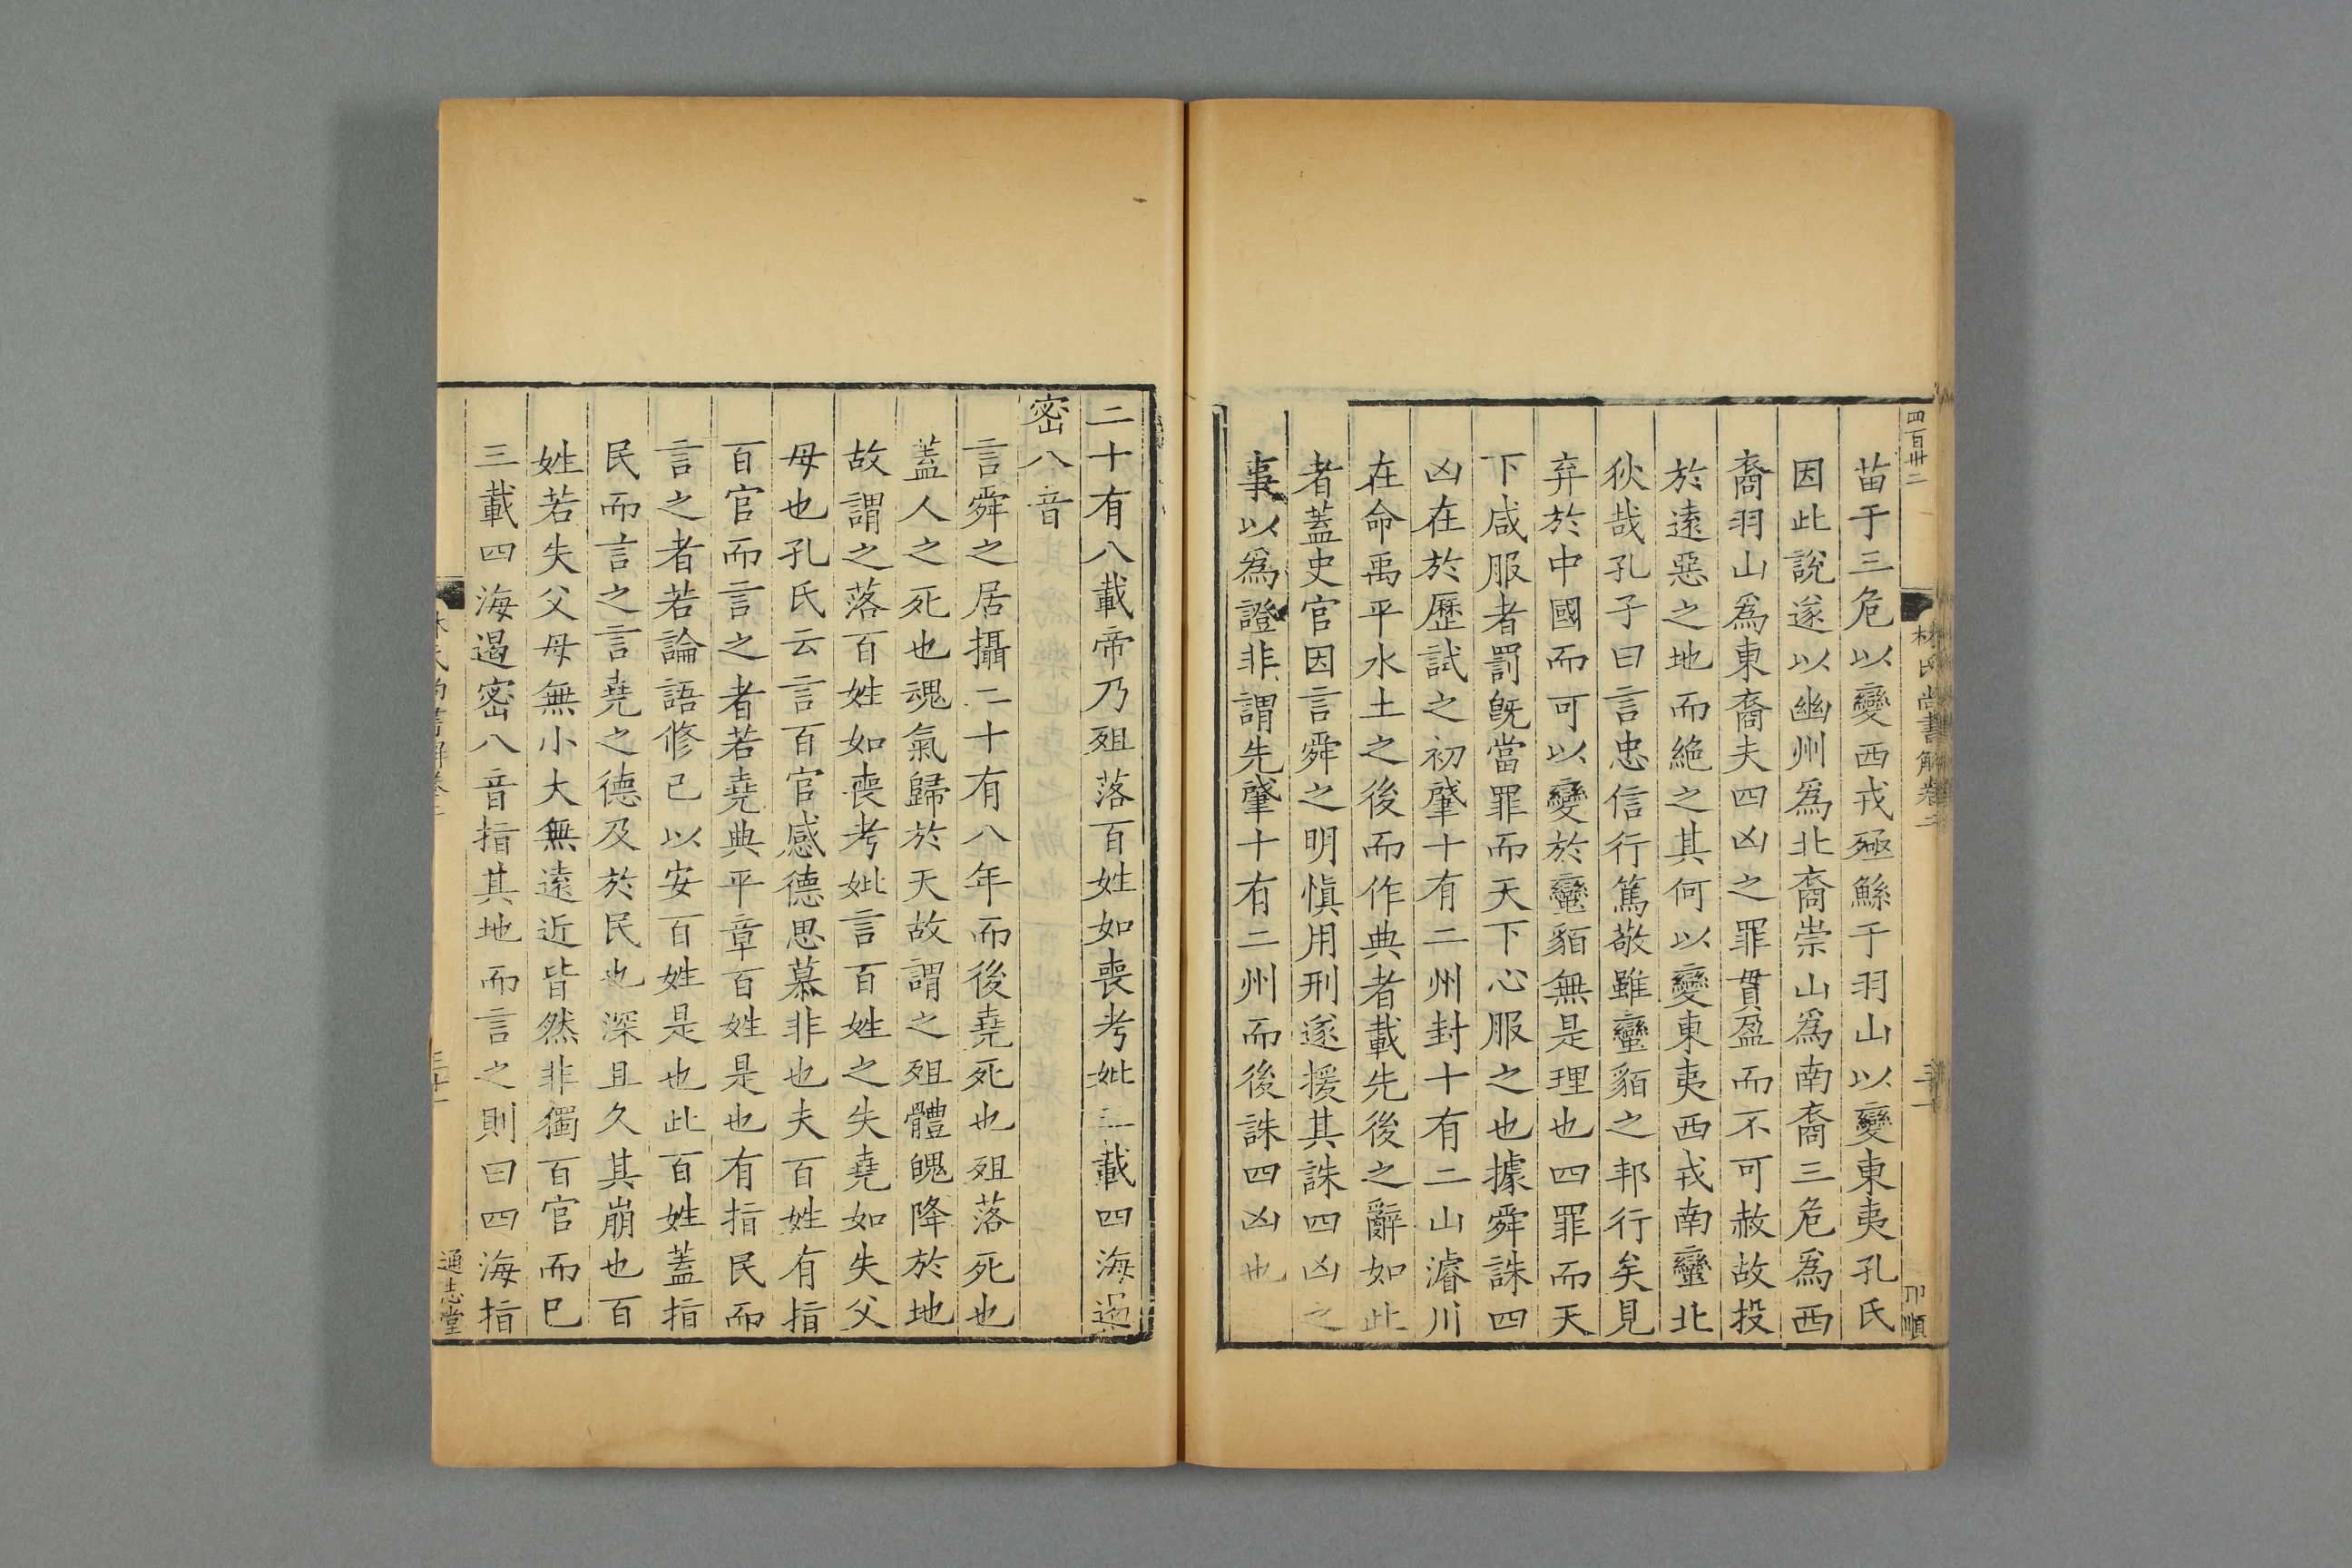 四百廿二
林氏尚書解卷二
三十一
卭順
苗于三危以變西戎殛鯀于羽山以變東夷孔氏
因此說遂以幽州爲北裔崇山爲南裔三危爲西
裔羽山爲東裔夫四凶之罪貫盈而不可赦故投
於遠惡之地而絶之其何以變東夷西戎南蠻北
狄哉孔子曰言忠信行篤敬雖蠻貊之邦行矣見
弃於中國而可以變於蠻貊無是理也四罪而天
下咸服者罰旣當罪而天下心服之也據舜誅四
凶在於歷試之初肇十有二州封十有二山濬川
在命禹平水土之後而作典者載先後之辭如此
者蓋史官因言舜之明愼用刑遂援其誅四凶之
事以爲證非謂先肇十有二州而後誅四凶也
二十有八載帝乃殂落百姓如喪考妣三載四海遏
密八音
言舜之居攝二十有八年而後堯死也殂落死也
蓋人之死也魂氣歸於天故謂之殂體魄降於地
故謂之落百姓如喪考妣言百姓之失堯如失父
母也孔氏云言百官感德思慕非也夫百姓有指
百官而言之者若堯典平章百姓是也有指民而
言之者若論語修己以安百姓是也此百姓蓋指
民而言之言堯之德及於民也深且久其崩也百
姓若失父母無小大無遠近皆然非獨百官而巳
三載四海遏密八音指其地而言之則曰四海指
通志堂